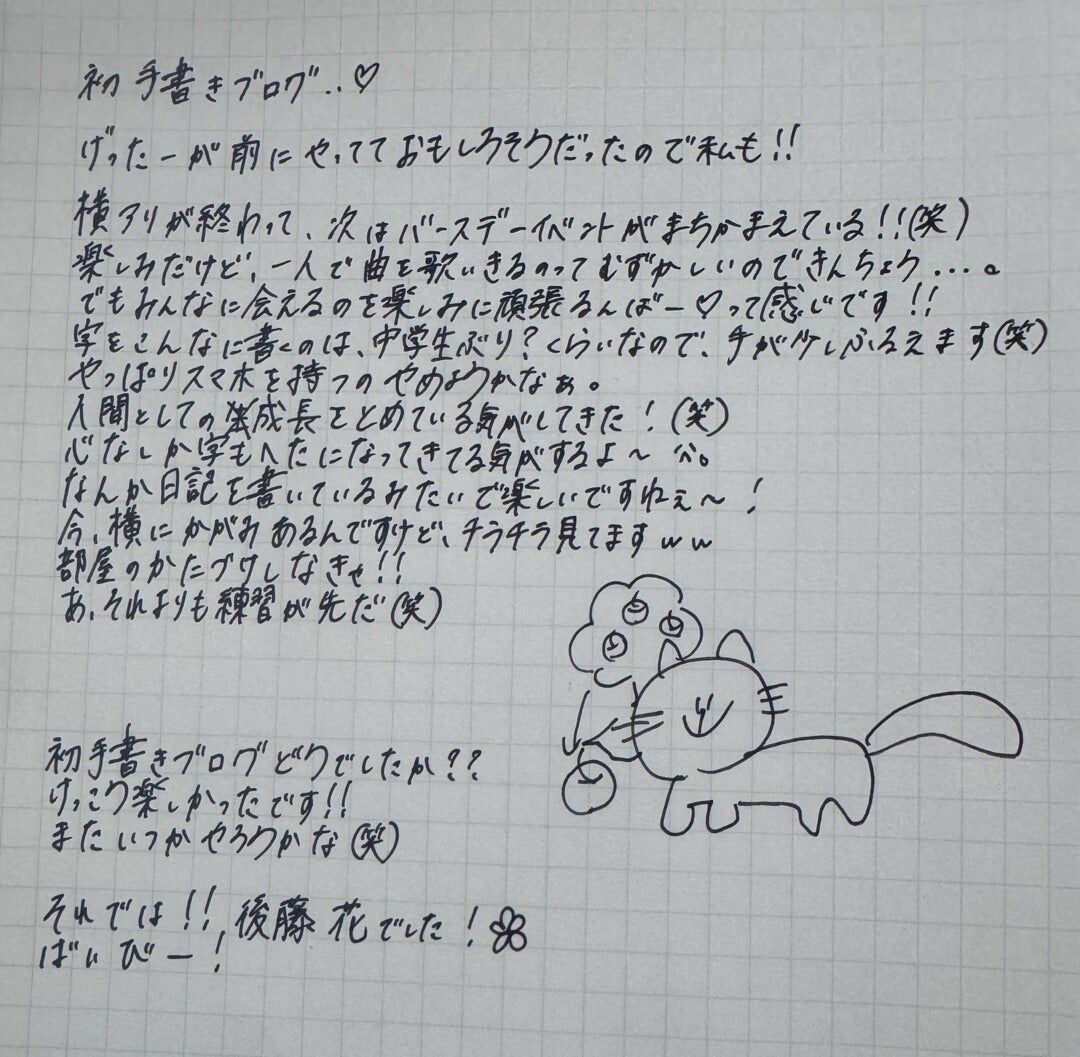 初手書きブログ..♡
げったーが前にやってておもしろそうだったので私も!!
横アリが終わって、次はバースデーイベントがまちかまえている!!(笑)
楽しみだけど、一人で曲を歌いきるのってむずかしいのできんちょう....。
でもみんなに会えるのを楽しみに頑張るんばー♡って感じです!!
字をこんなに書くのは、中学生ぶり?くらいなので、手が少しふるえます(笑)
やっぱりスマホを持つのやめようかなぁ。
人間としての成長をとめている気がしてきた!(笑)
心なしか字もへたになってきてる気がするよ〜
なんか日記を書いているみたいで楽しいですねぇ〜!
今、横にかがみあるんですけど、チラチラ見てますww
部屋のかたづけしなきゃ!!
あ、それよりも練習が先だ(笑)
初手書きブログどうでしたか??
けっこう楽しかったです!!
またいつかやろうかな(笑)
それでは!!後藤花でした!
ばいびー!